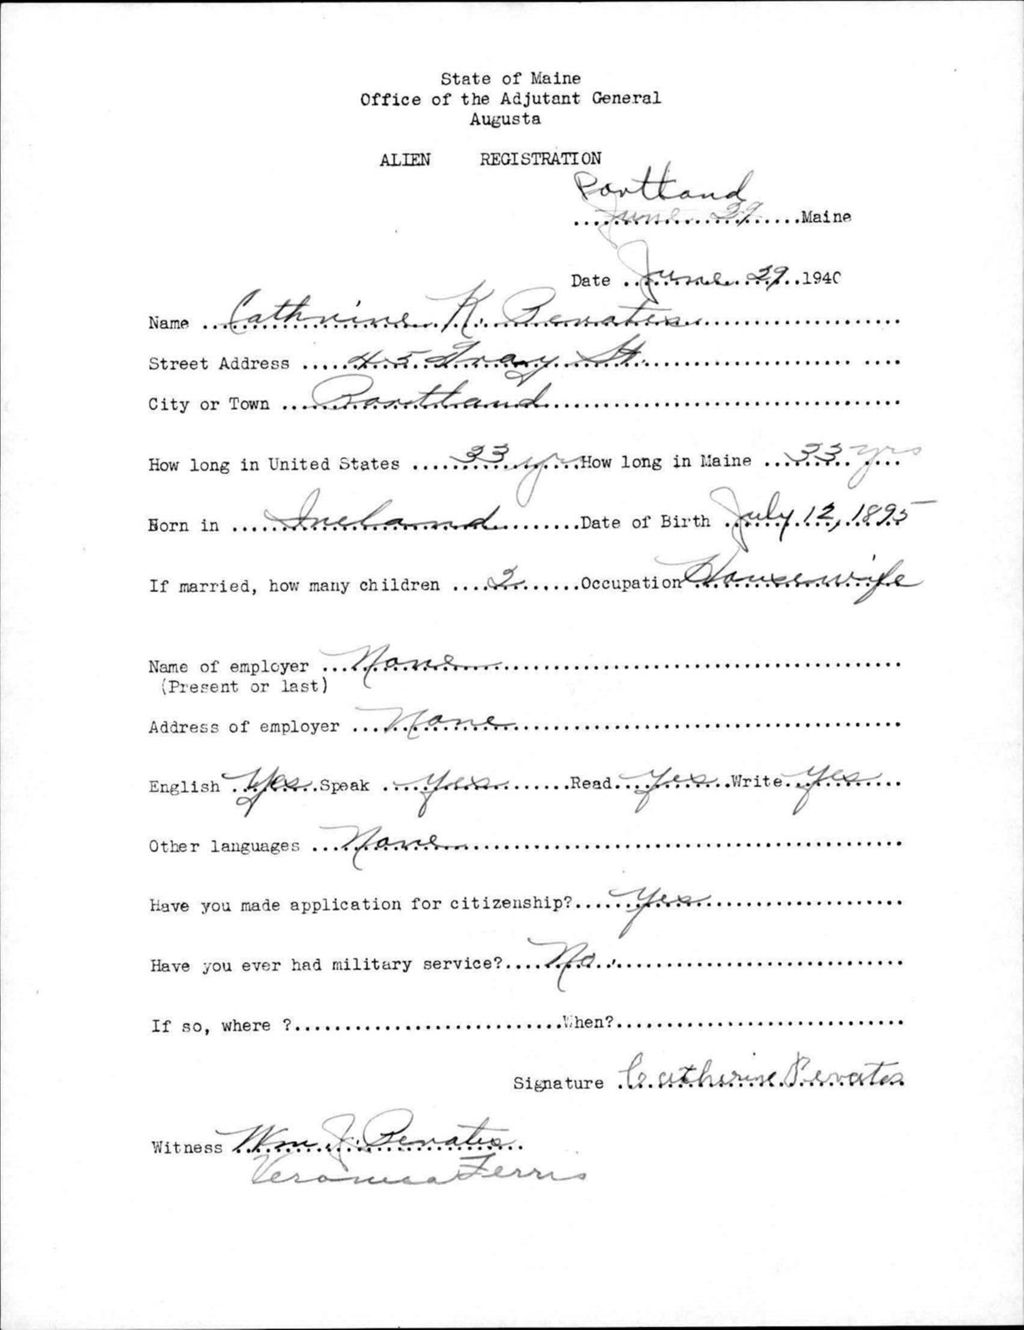 State of Maine
Office of the Adjutant General
Augusta
ALIEN REGISTRATION
Portland
June 29 Maine
Date June 29 1940
Name Cathrine K. Benates
Street Address 45 Gray St.
City or Town Portland
How long in United States 33 yrs How long in Maine 33 yrs
Born in Ireland Date of Birth July 12, 1895
If married, how many children 2 Occupation Housewife
Name of employer None
(Present or last)
Address of employer None
English Yes Speak Yes Read Yes Write Yes
Other languages None
Have you made application for citizenship? Yes
Have you ever had military service? No.
If so, where ? When?
Signature Catherine Benates
Witness Wm J. Benates
Veronica Ferris